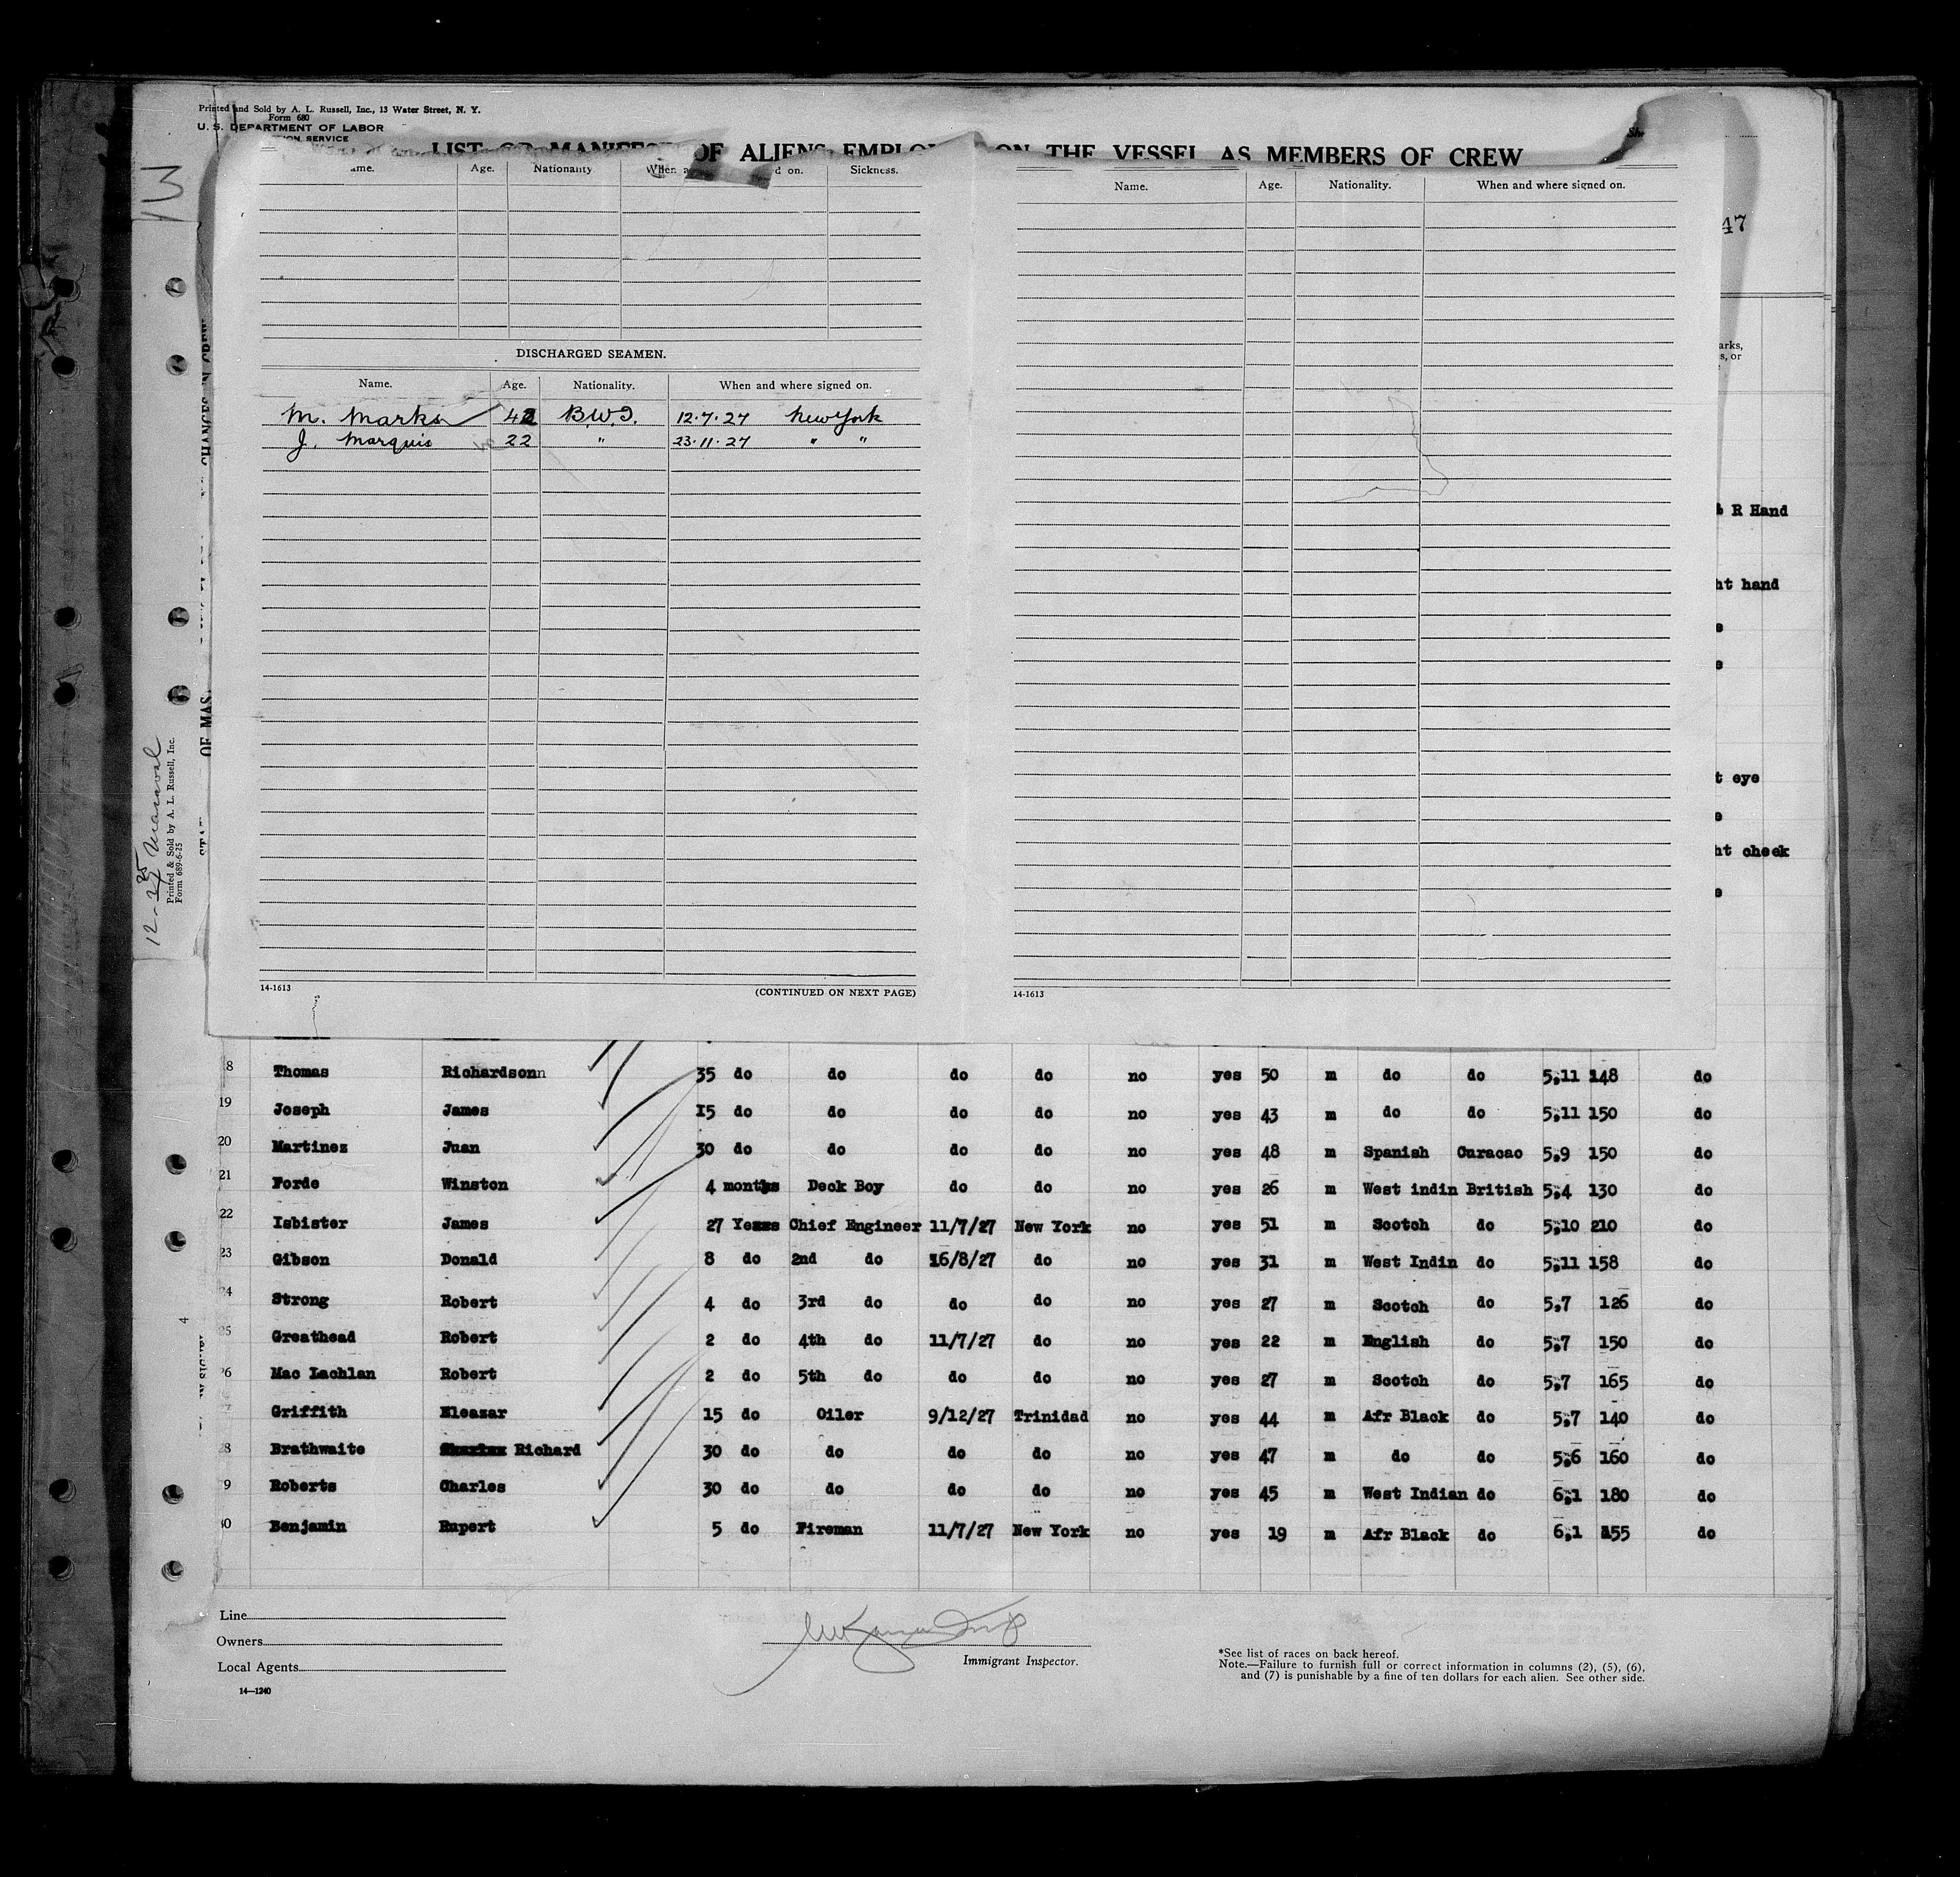 Printed and Sold by A. L. Russell, Inc., 13 Water Street, N. Y.
Form 680
U. S. DEPARTMENT OF LABOR
SERVICE
LIST OR MANIFEST OF ALIENS EMPLOYED ON THE VESSEL AS MEMBERS OF CREW
Age. Nationality Sickness.
Name. Age. Nationality. When and where signed on.
47
DISCHARGED SEAMEN.
Name. Age. Nationality. When and where signed on.
M. Marks 42 B.W.I. 12.7.27 New York
J. Marquis 22 " 23.11.27 " "
arks,
s, or
R Hand
ht hand
e
e
t eye
e
ht cheek
e
12-25 Maraval
Printed & Sold by A. L. Russell, Inc.
Form 689-6-25
CHANGES IN CREW
OF MAS
14-1613 (CONTINUED ON NEXT PAGE)
14-1613
8 Thomas Richardsonn 35 do do do do no yes 50 m do do 5,11 148 do
19 Joseph James 15 do do do do no yes 43 m do do 5,11 150 do
20 Martinez Juan 30 do do do do no yes 48 m Spanish Curacao 5,9 150 do
21 Forde Winston 4 months Deck Boy do do no yes 26 m West indin British 5,4 130 do
22 Isbister James 27 Years Chief Engineer 11/7/27 New York no yes 51 m Scotch do 5,10 210 do
23 Gibson Donald 8 do 2nd do 16/8/27 do no yes 31 m West Indin do 5,11 158 do
24 Strong Robert 4 do 3rd do do do no yes 27 m Scotch do 5,7 126 do
25 Greathead Robert 2 do 4th do 11/7/27 do no yes 22 m English do 5,7 150 do
26 Mac Lachlan Robert 2 do 5th do do do no yes 27 m Scotch do 5,7 165 do
7 Griffith Eleazar 15 do Oiler 9/12/27 Trinidad no yes 44 m Afr Black do 5,7 140 do
8 Brathwaite Richard 30 do do do do no yes 47 m do do 5,6 160 do
9 Roberts Charles 30 do do do do no yes 45 m West Indian do 6,1 180 do
0 Benjamin Rupert 5 do Fireman 11/7/27 New York no yes 19 m Afr Black do 6,1 155 do
4
Line
Owners
Local Agents
14—1240
Immigrant Inspector.
*See list of races on back hereof.
Note.—Failure to furnish full or correct information in columns (2), (5), (6),
and (7) is punishable by a fine of ten dollars for each alien. See other side.